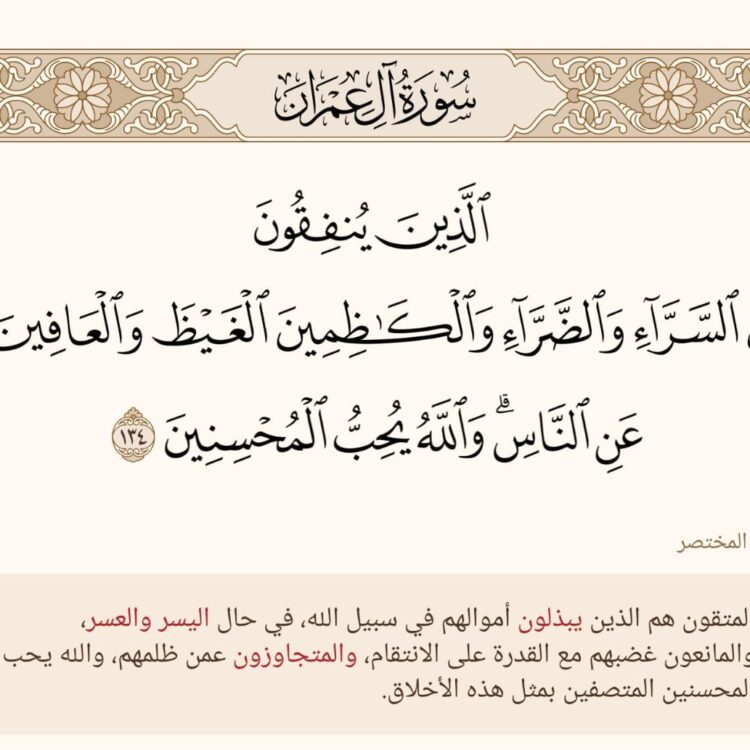 سُورَةُ آلِ عِمْرَانَ
ٱلَّذِينَ يُنفِقُونَ
ٱلسَّرَّآءِ وَٱلضَّرَّآءِ وَٱلْكَـٰظِمِينَ ٱلْغَيْظَ وَٱلْعَافِينَ
عَنِ ٱلنَّاسِ ۗ وَٱللَّهُ يُحِبُّ ٱلْمُحْسِنِينَ ١٣٤
المختصر
لمتقون هم الذين يبذلون أموالهم في سبيل الله، في حال اليسر والعسر،
والمانعون غضبهم مع القدرة على الانتقام، والمتجاوزون عمن ظلمهم، والله يحب
لمحسنين المتصفين بمثل هذه الأخلاق.